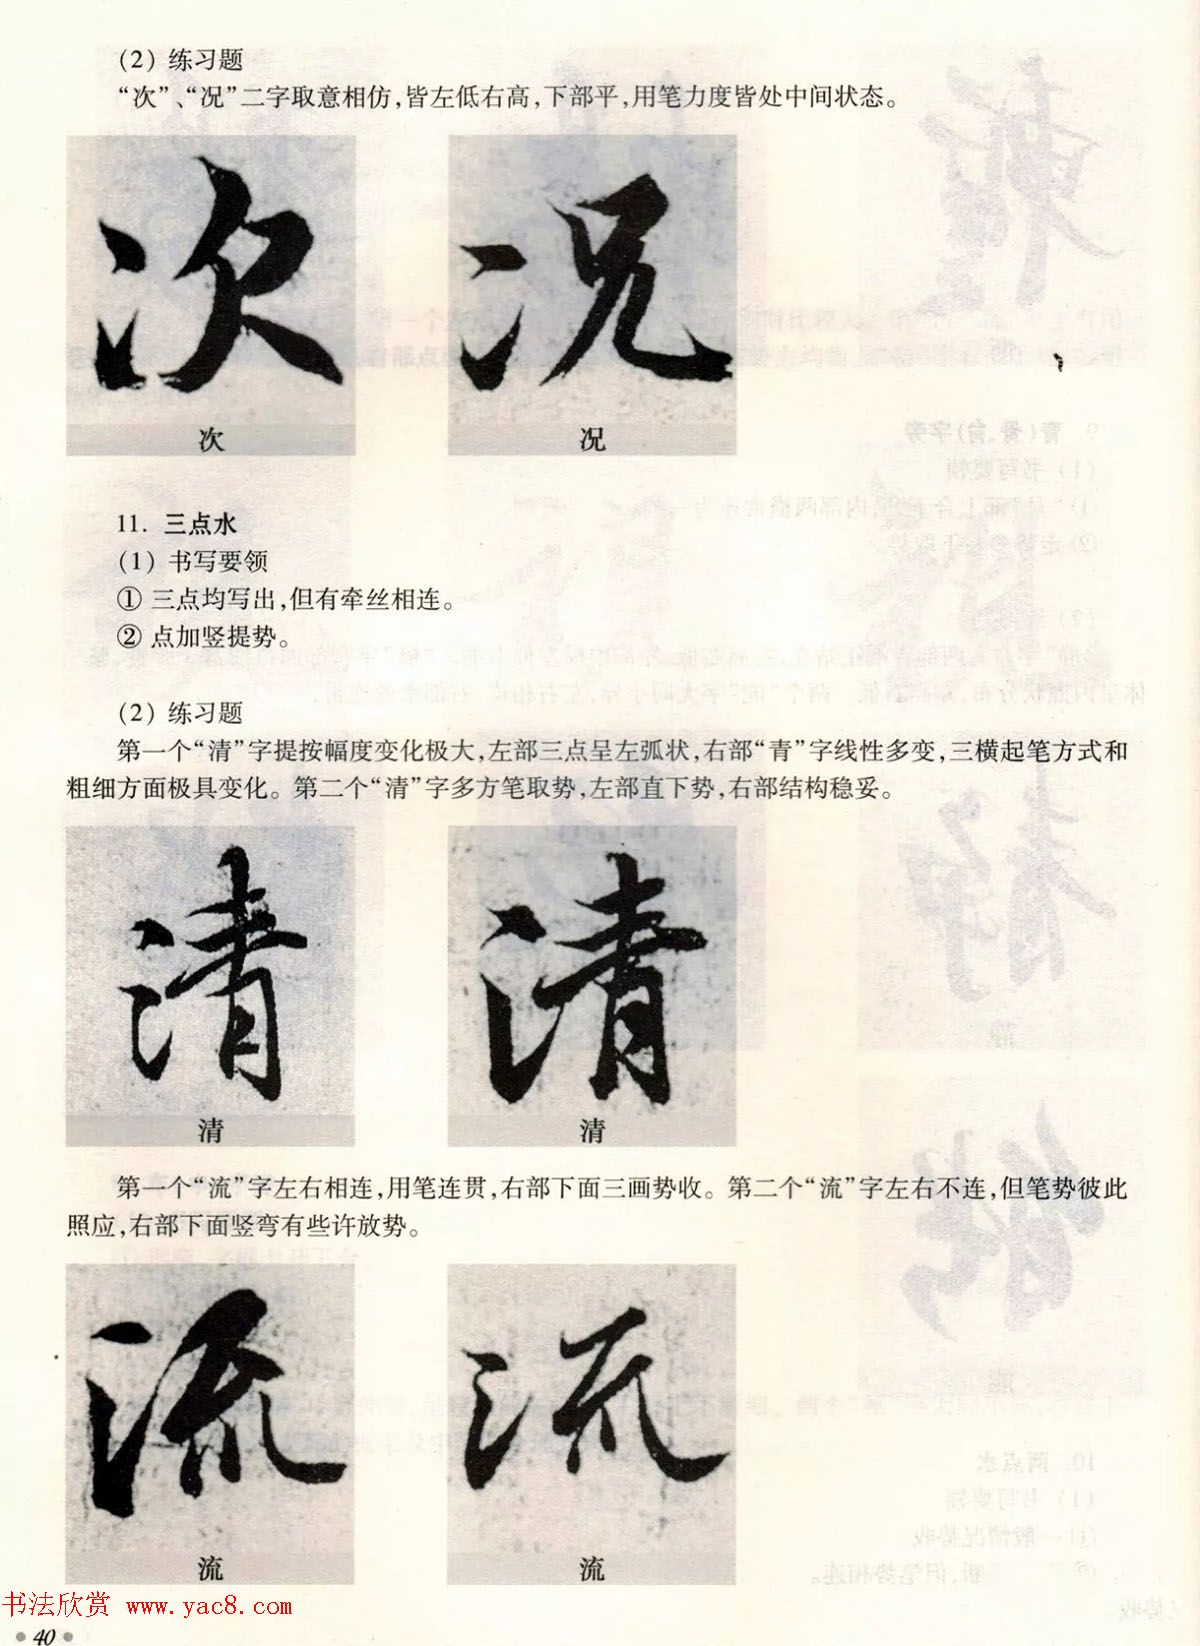 (2) 练习题
“次”、“况”二字取意相仿,皆左低右高,下部平,用笔力度皆处中间状态。
次 况
次 况
11. 三点水
(1) 书写要领
① 三点均写出,但有牵丝相连。
② 点加竖提势。
(2) 练习题
第一个“清”字提按幅度变化极大,左部三点呈左弧状,右部“青”字线性多变,三横起笔方式和
粗细方面极具变化。第二个“清”字多方笔取势,左部直下势,右部结构稳妥。
清 清
清 清
第一个“流”字左右相连,用笔连贯,右部下面三画势收。第二个“流”字左右不连,但笔势彼此
照应,右部下面竖弯有些许放势。
流 流
流 流
书法欣赏 www.yac8.com
40